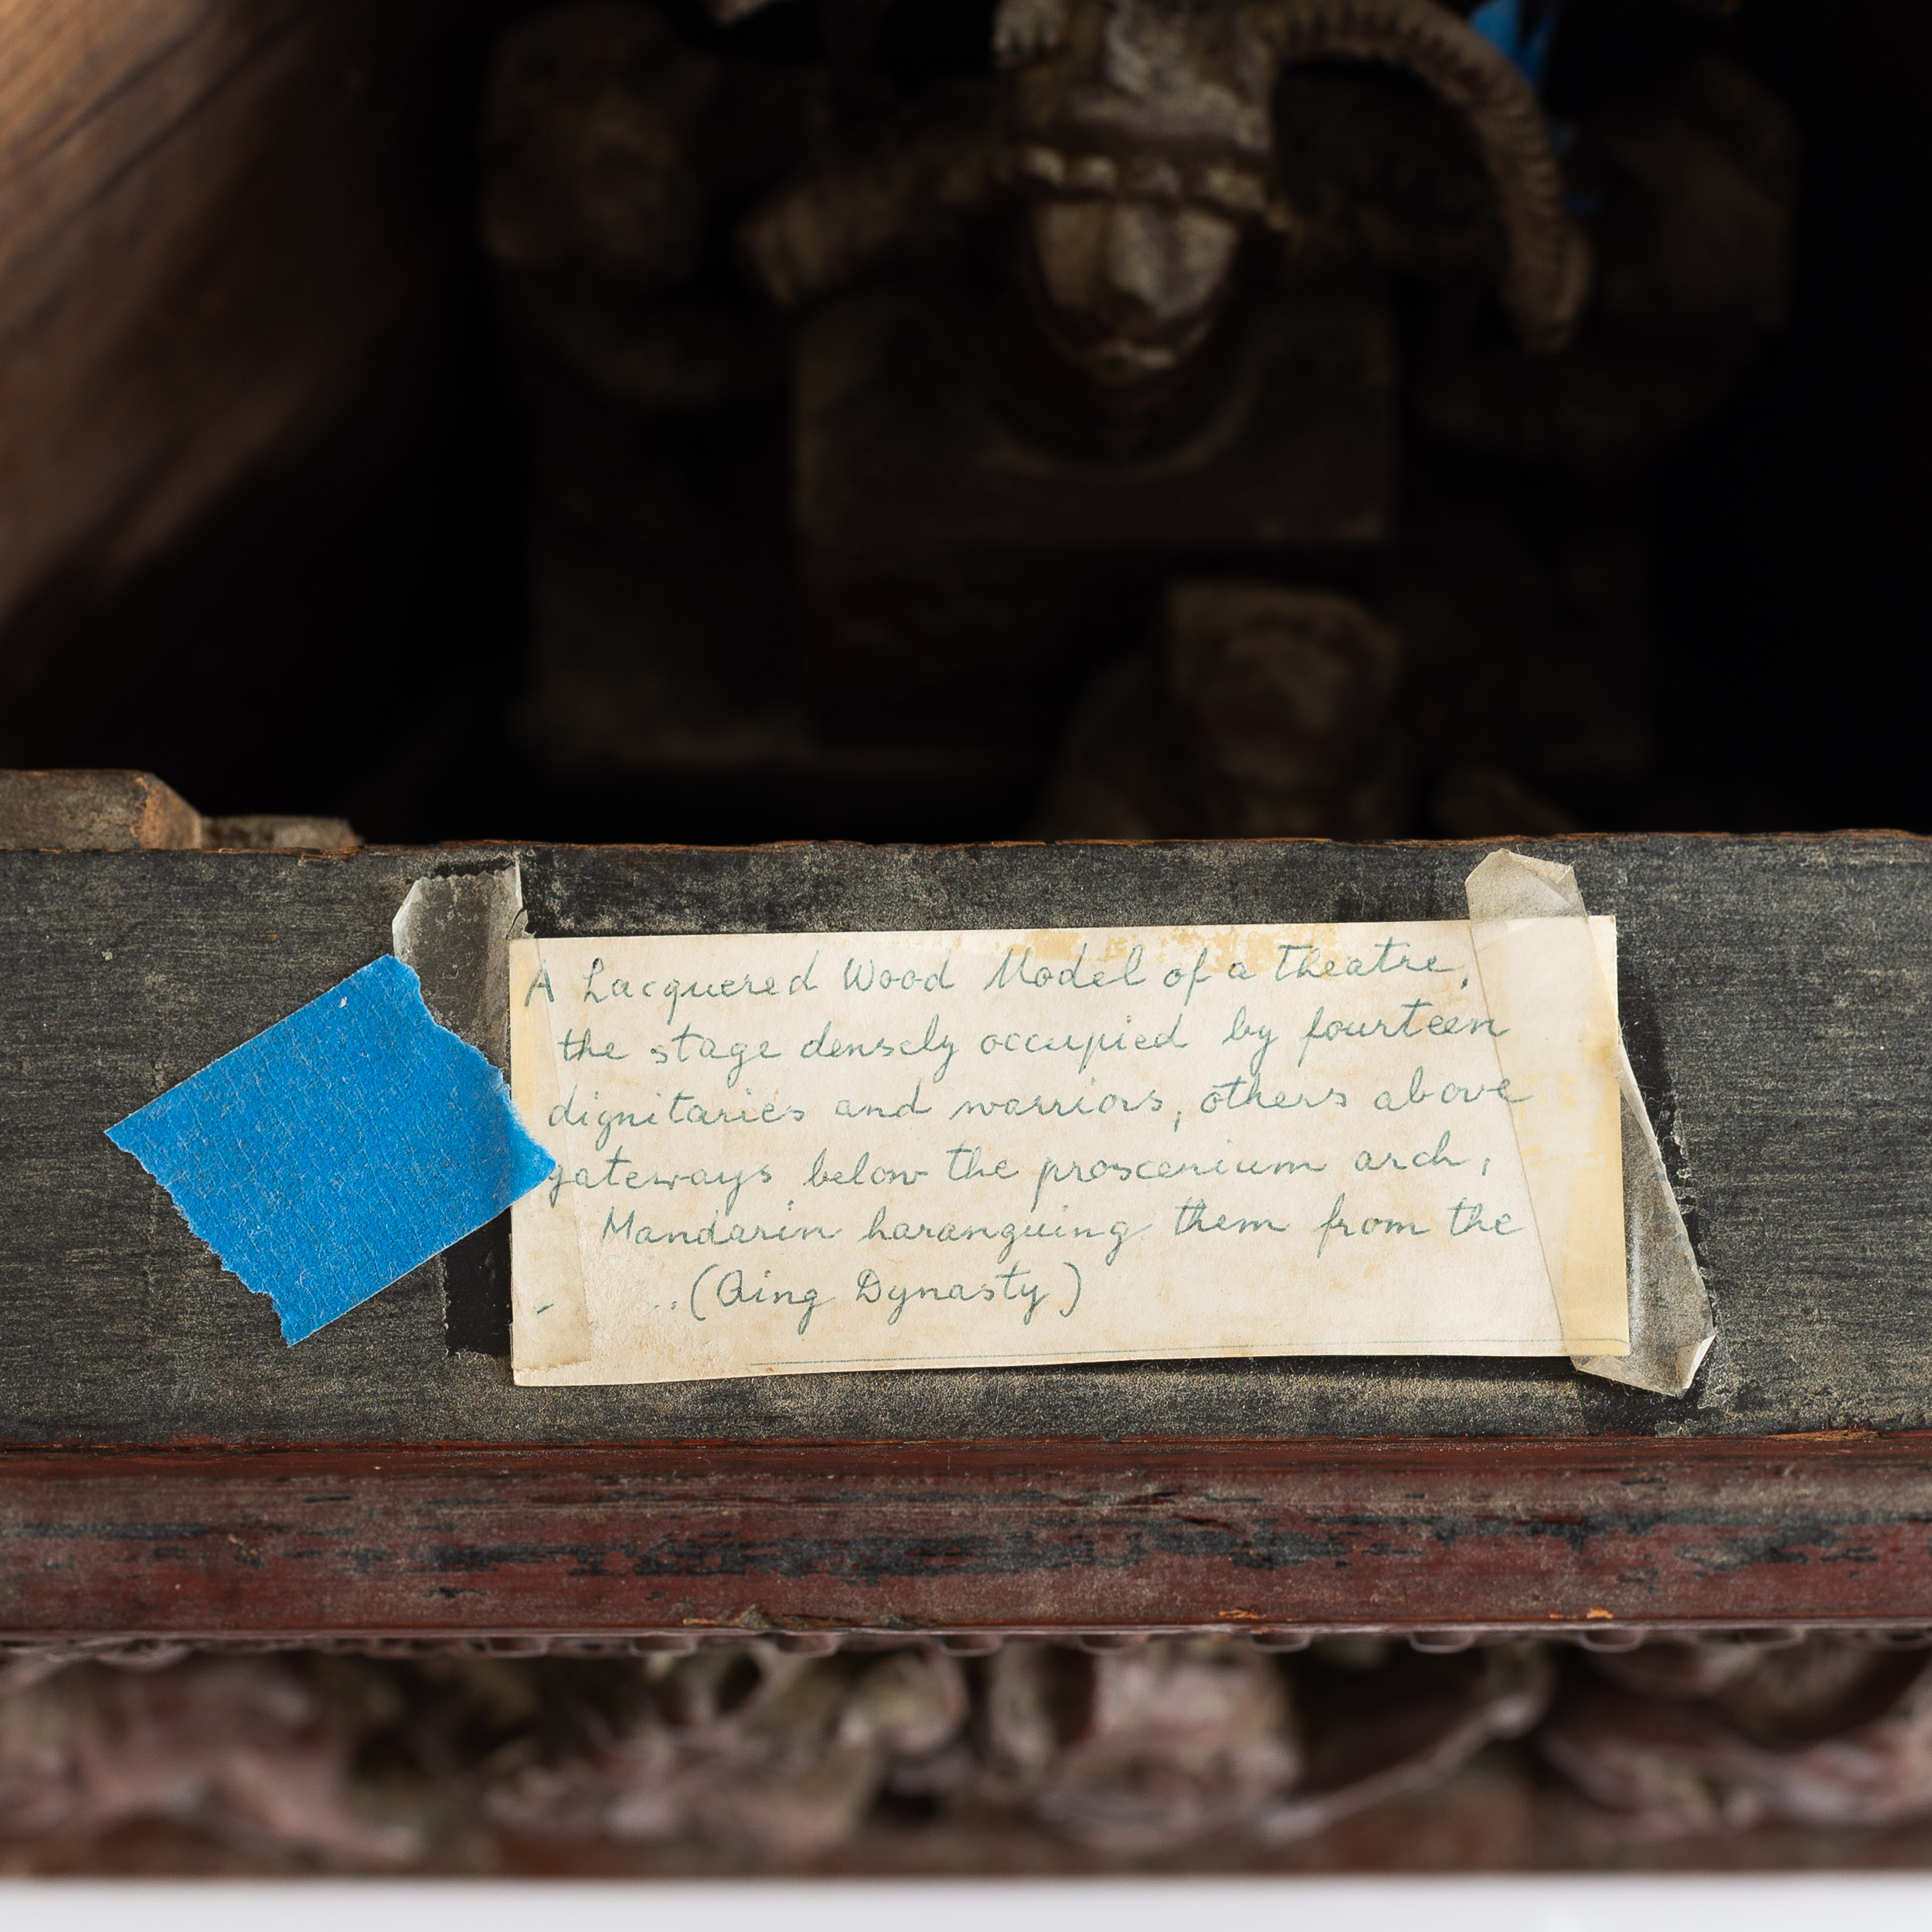 A Lacquered Wood Model of a theatre,
the stage densely occupied by fourteen
dignitaries and warriors, others above
gateways below the proscenium arch,
Mandarin haranguing them from the
(Qing Dynasty)